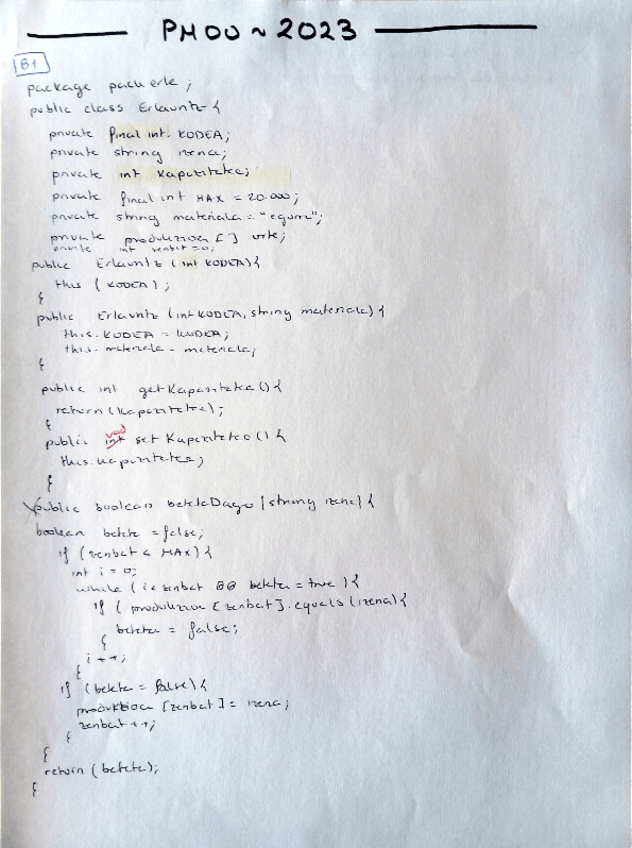 PMOO ~ 2023
B1
package packerle;
public class Erlauntz {
private final int KODEA;
private string izena;
private int Kapazitatea;
private final int MAX = 20.000;
private string materiala = "egurra";
private produkzioa [] urte;
private int zenbat = 0;
public Erlauntz (int KODEA){
this (KODEA);
}
public Erlauntz (int KODEA, string materiala){
this.KODEA = KODEA;
this.materiala = materiala;
}
public int getKapazitatea (){
return (kapazitatea);
}
public void set Kapazitatea (){
this.kapazitatea;
}
public boolean beteteDago (string izena){
boolean betete = false;
if (zenbat < MAX){
int i = 0;
while (i < zenbat && betete = true){
if (produkzioa [zenbat].equals (izena){
betete = false;
}
i++;
}
if (betete = false){
produkzioa [zenbat] = izena;
zenbat++;
}
}
return (betete);
}